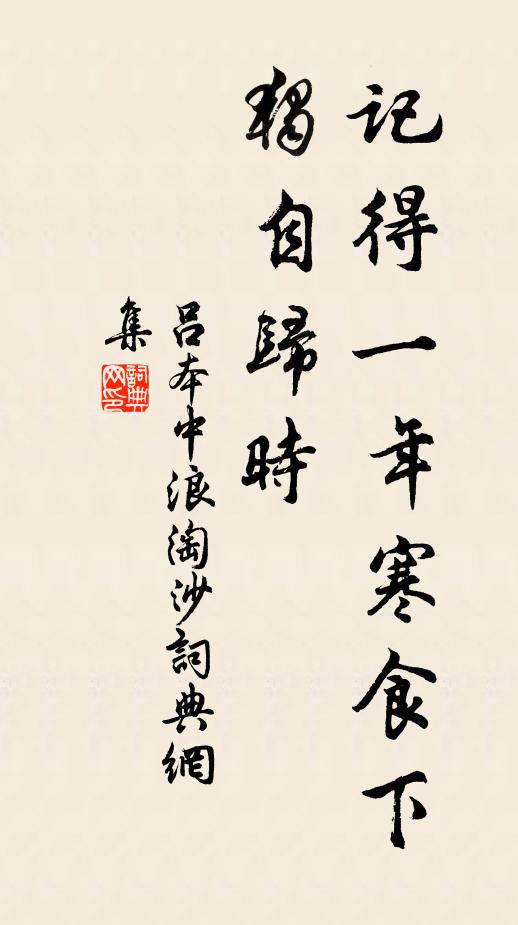 記得一年寒食下
獨自歸時
呂本中浪淘沙詞典網
集
詞典
网印